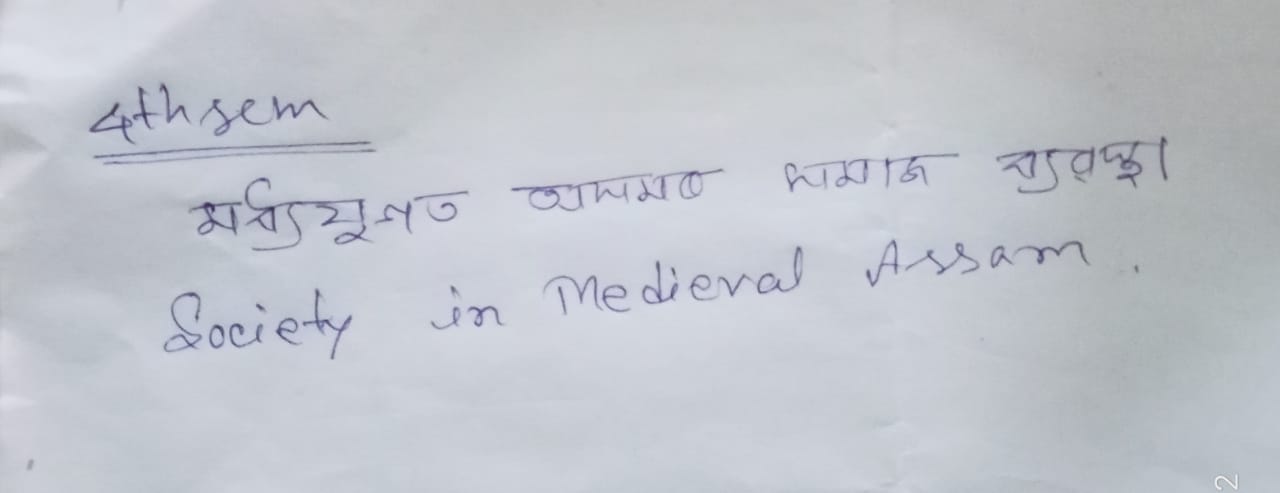 4th sem
মধ্যযুগত অসমৰ সমাজ ব্যৱস্থা
Society in Medieval Assam.
2